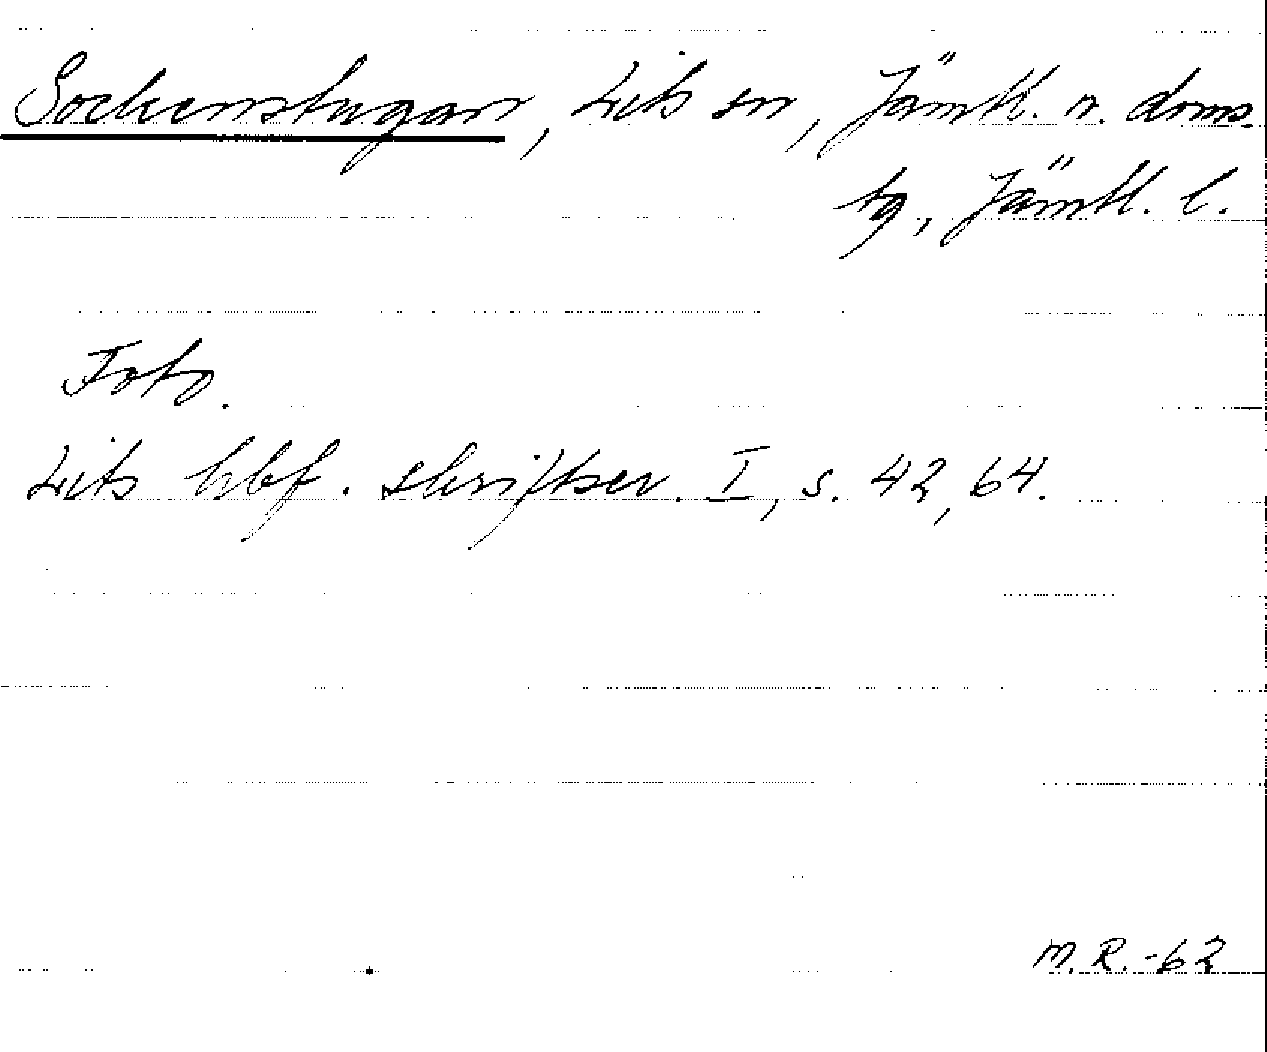 Sockenstugan, Lits sn, Jämtl. n. doms.
tg, Jämtl. l.
Foto.
Lits hbf. skriftser. I, s. 42, 64.
M.R.-62